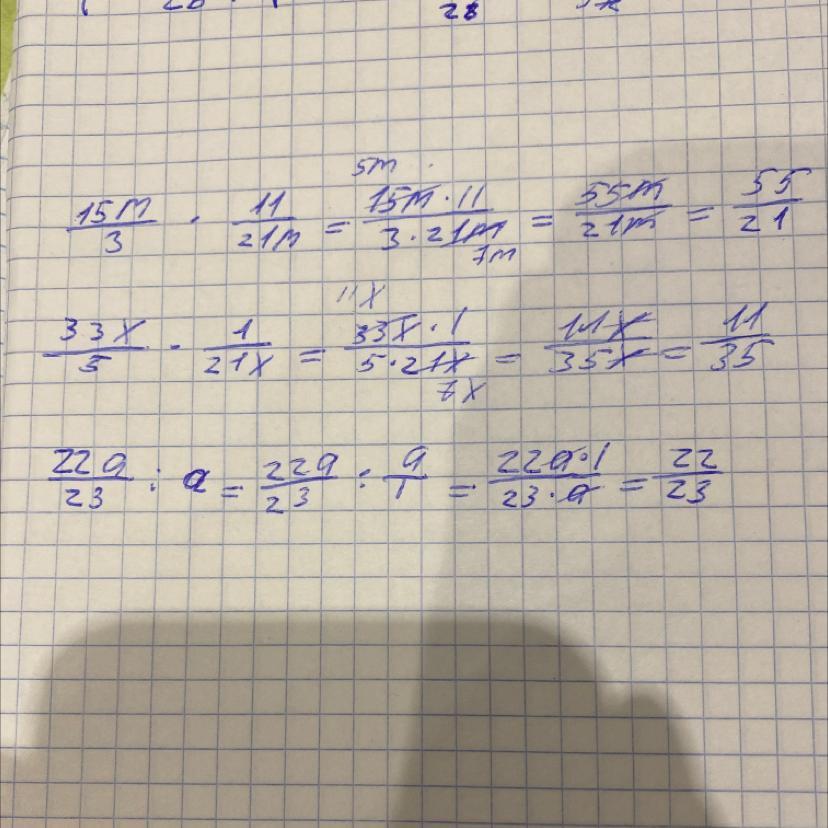 28 28
5m
15m/3 · 11/21m = 15m·11/3·21m = 55m/21m = 55/21
7m
11x
33x/5 · 1/21x = 33x·1/5·21x = 11x/35x = 11/35
7x
22a/23 : a = 22a/23 : a/1 = 22a·1/23·a = 22/23